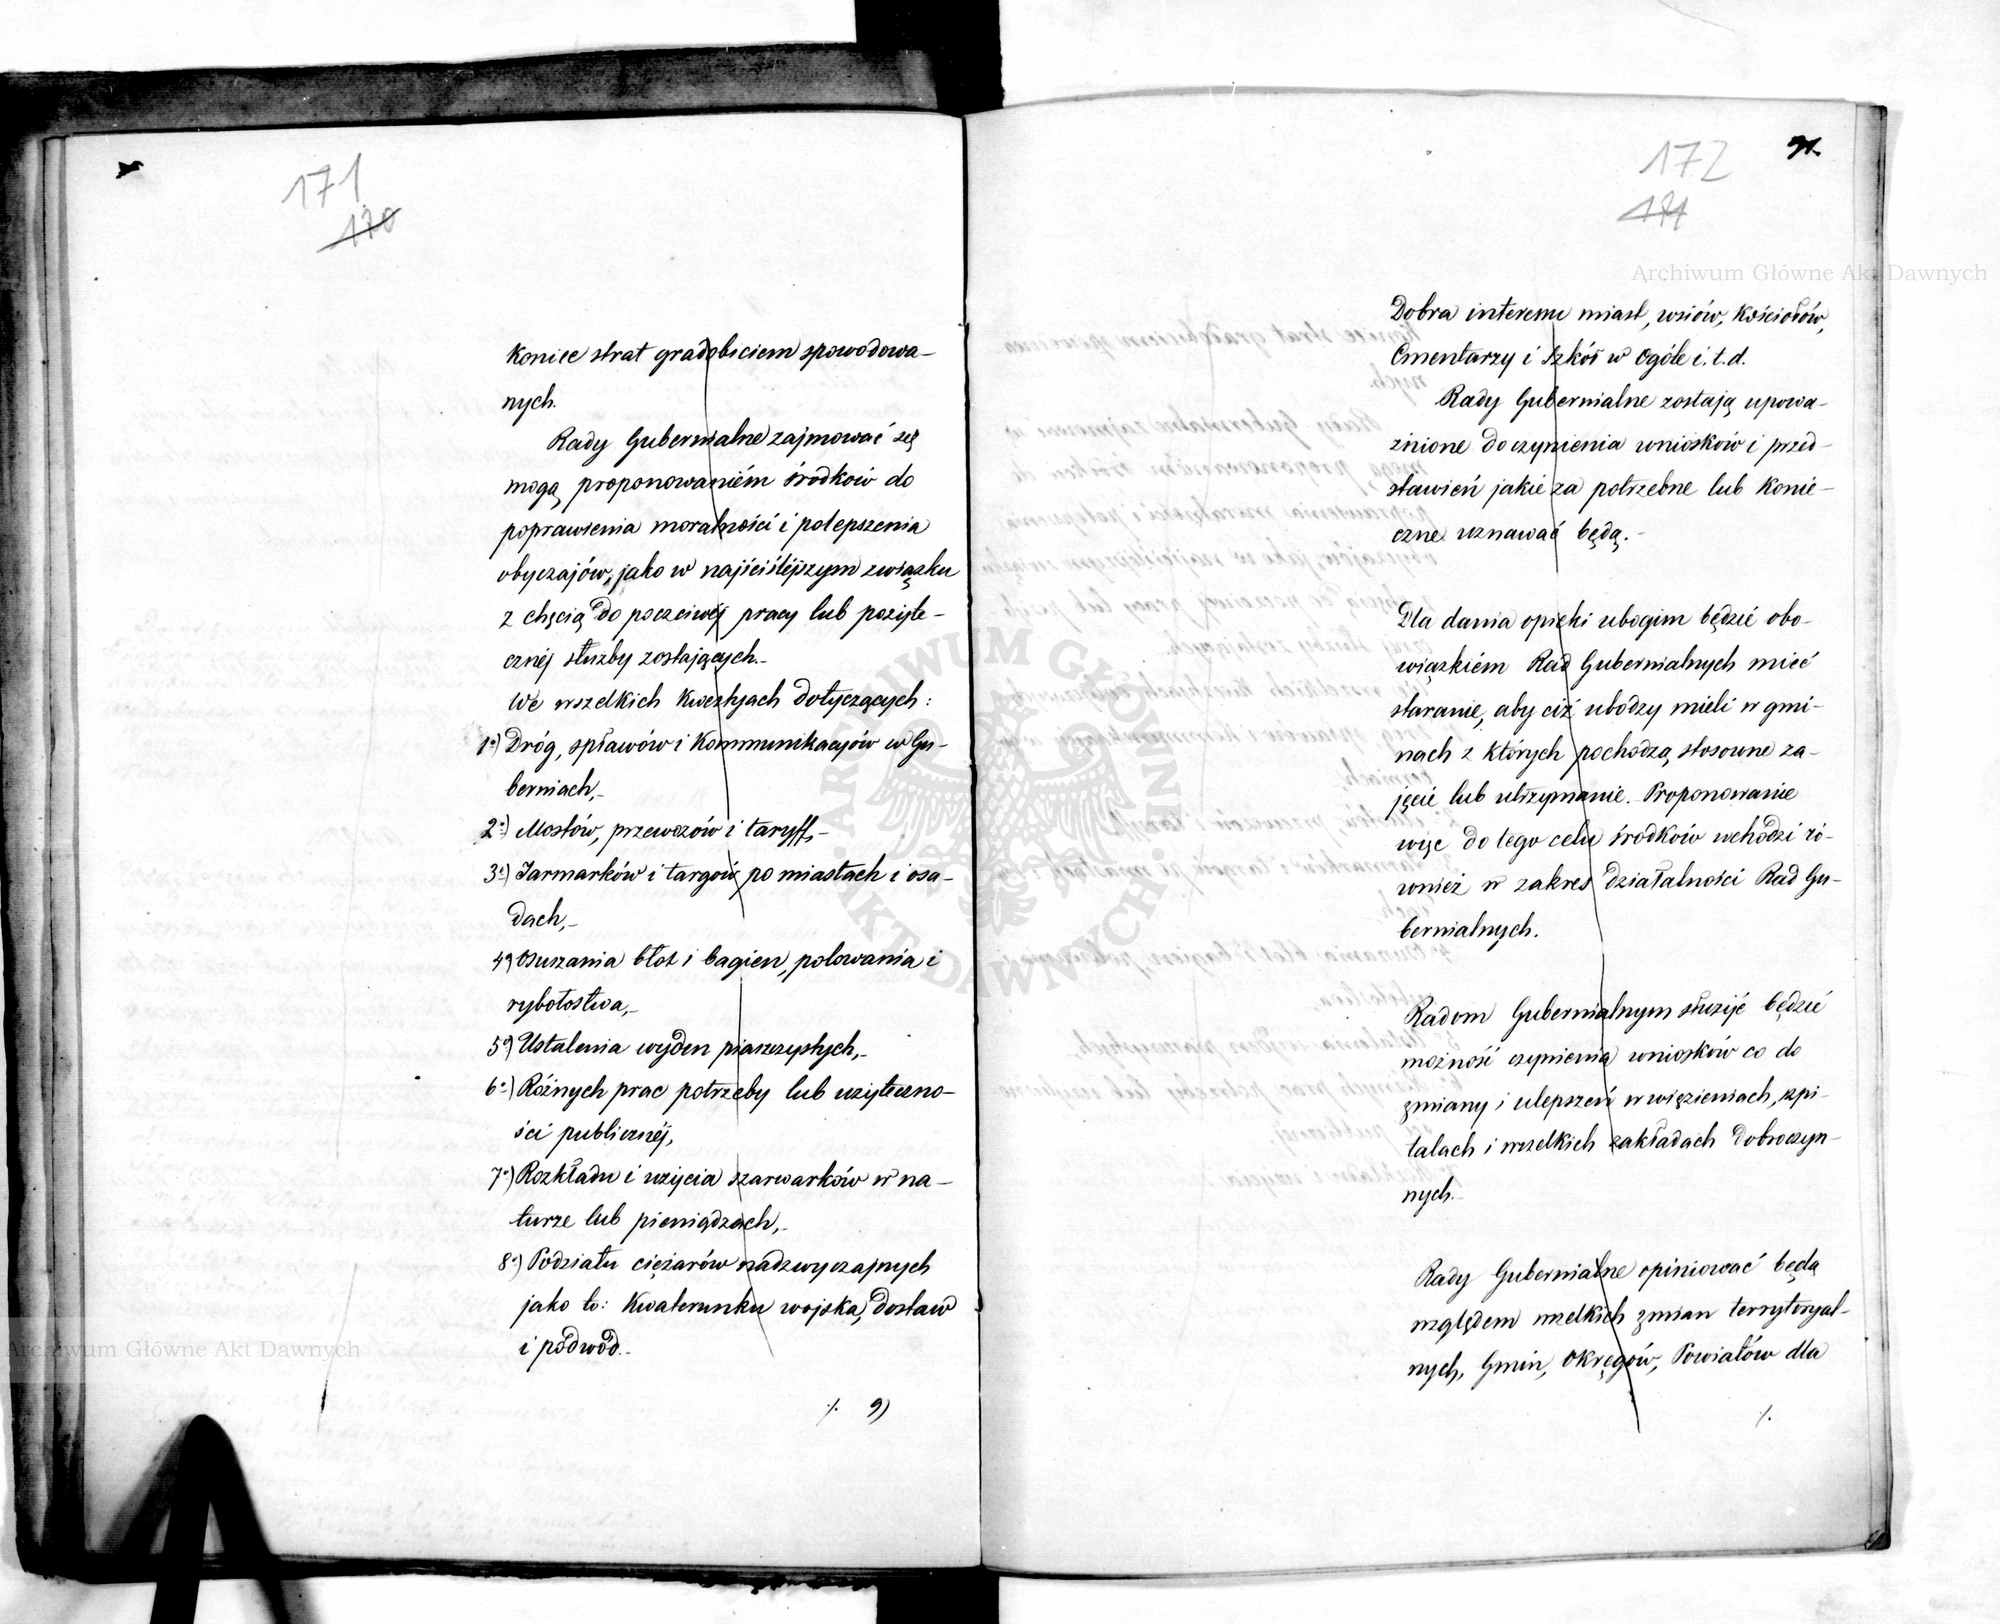 171
170
koniec strat gradobiciem spowodowa-
nych.
Rady Gubernialne zajmować się
mogą proponowaniém środków do
poprawienia moralności i polepszenia
obyczajów, jako w najściślejszym związku
z chęcią do poczciwéj pracy lub pożyte-
cznéj służby zostających.-
We wszelkich kwestyjach dotyczących:
1o) Dróg, spławów i Kommunikacyjów w Gu-
berniach,-
2o) Mostów, przewozów i taryff,-
3o) Jarmarków i targów po miastach i osa-
dach,-
4o) Osuszania błot i bagien, polowania i
rybołostwa,-
5o) Ustalenia wydm piaszczystych,-
6o) Różnych prac potrzeby lub użyteczno-
ści publicznéj,
7o) Rozkładu i użycia szarwarków w na-
turze lub pieniądzach,-
8o) Podziału ciężarów nadzwyczajnych
jako to: Kwaterunku wojska, dostaw
i podwód.-
./. 9)
172
171
91.
Dobra interesu miast, wsiów, Kościołów,
Cmentarzy i szkół w ogóle i.t.d.
Rady Gubernialne zostają upowa-
żnione do czynienia wniosków i przed-
stawień jakie za potrzebne lub konie-
czne uznawać będą.-
Dla dania opieki ubogim będzie obo-
wiązkiém Rad Gubernialnych mieć
staranie, aby ciż ubodzy mieli w gmi-
nach z których pochodzą stosowne za-
jęcie lub utrzymanie. Proponowanie
więc do tego celu środków wchodzi ró-
wnież w zakres działalności Rad Gu-
bernialnych.
Radom Gubernialnym służyć będzie
możność czynienia wniosków co do
zmiany i ulepszeń w więzieniach, szpi-
talach i wszelkich zakładach dobroczyn-
nych.-
Rady Gubernialne opiniować będą
względem wszelkich zmian terrytoryal-
nych, Gmin, Okręgów, Powiatów dla
./.
Archiwum Główne Akt Dawnych
Archiwum Główne Akt Dawnych
ARCHIWUM GŁÓWNE AKT DAWNYCH